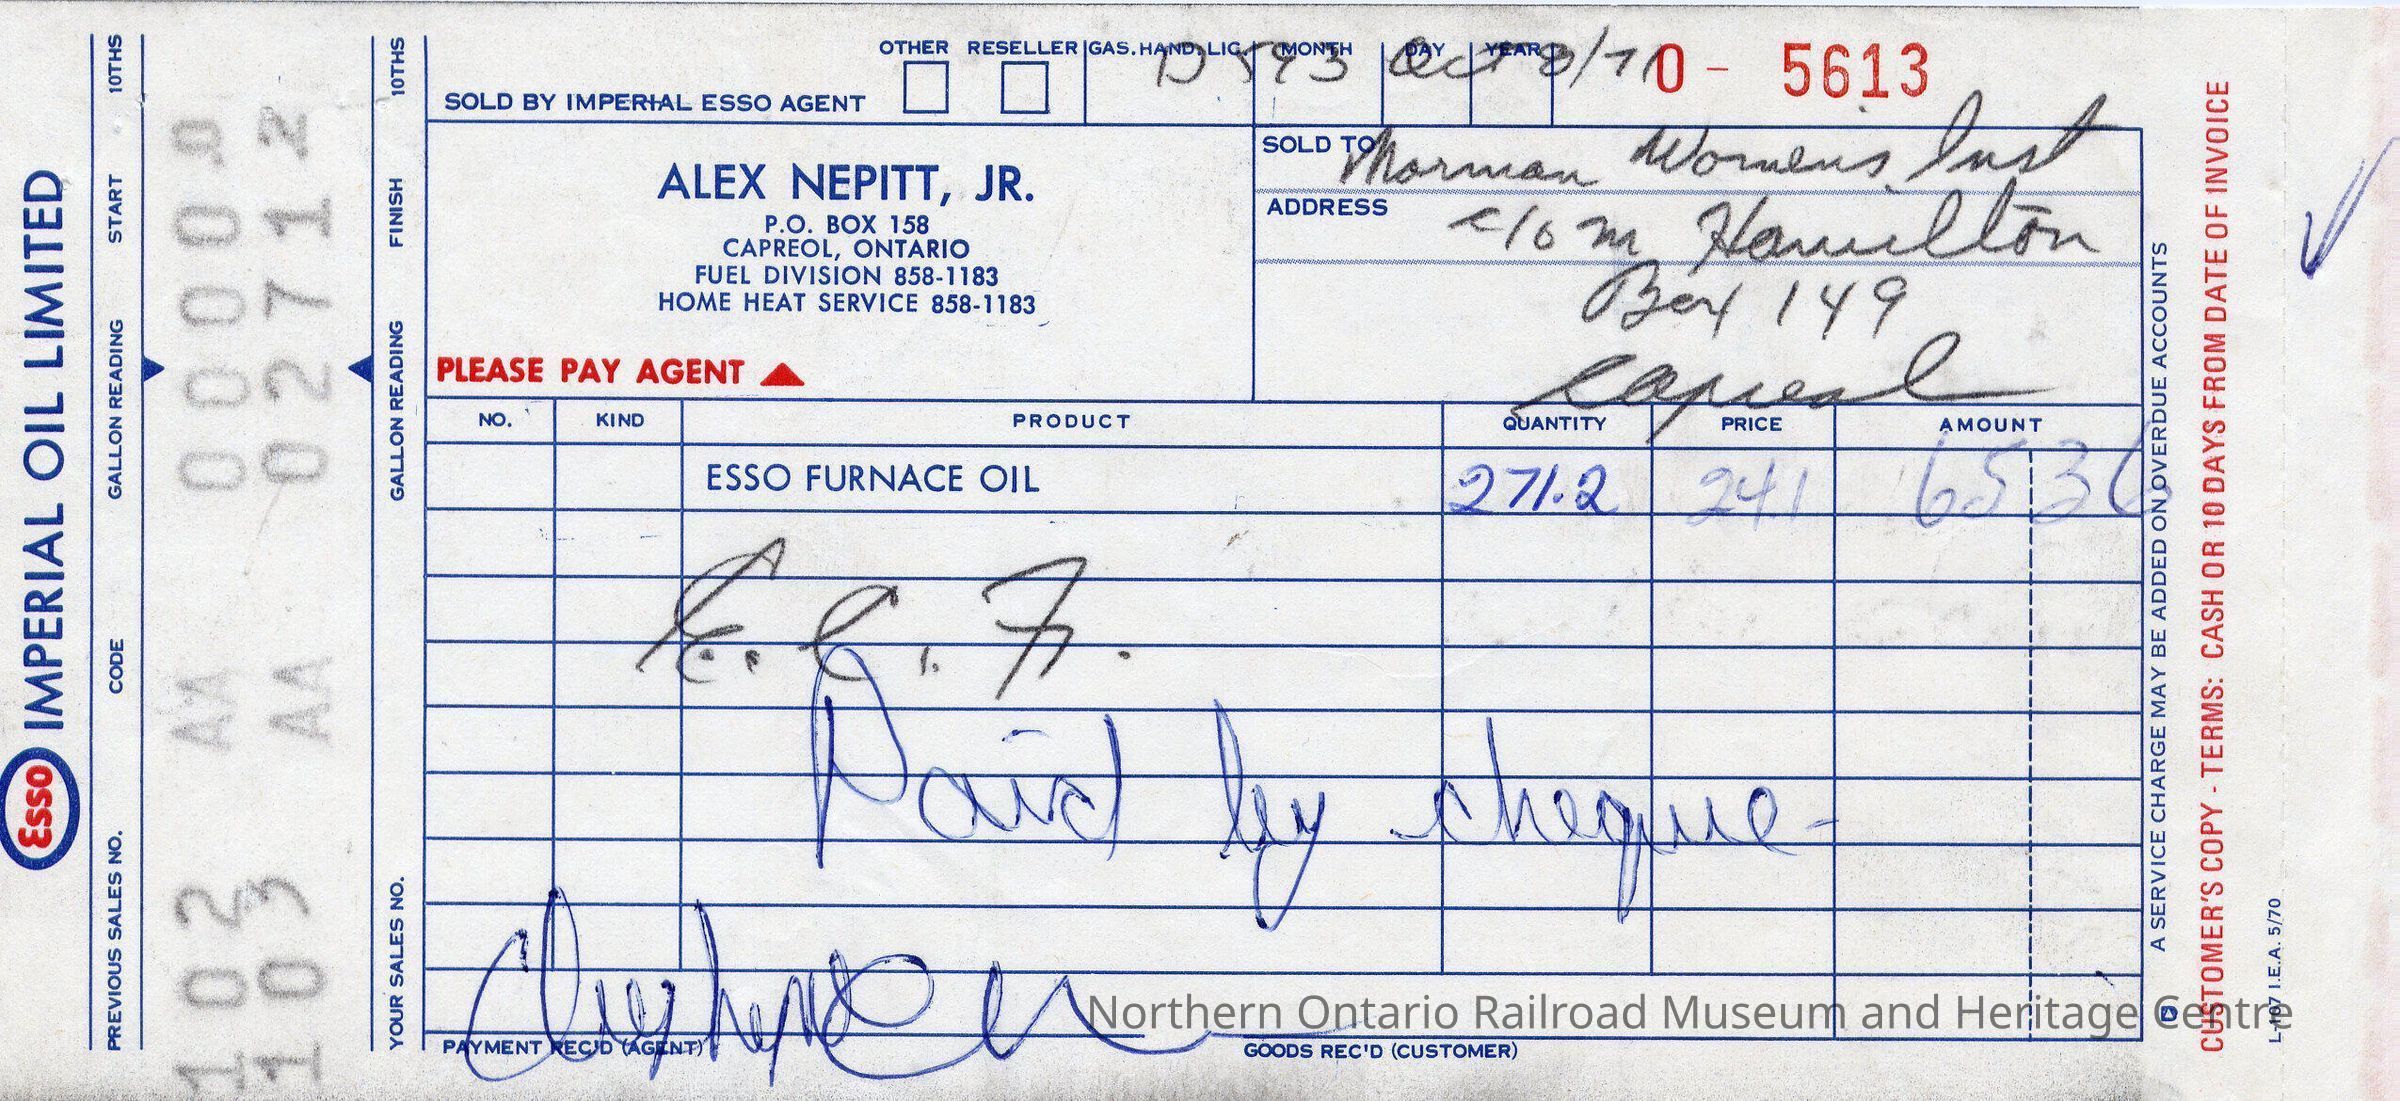 OTHER RESELLER GAS. HAND. LIC. MONTH DAY YEAR
D 593 Oct 8/71 0 - 5613
SOLD BY IMPERIAL ESSO AGENT
ALEX NEPITT, JR.
P.O. BOX 158
CAPREOL, ONTARIO
FUEL DIVISION 858-1183
HOME HEAT SERVICE 858-1183
PLEASE PAY AGENT
SOLD TO Norman Womens Inst
ADDRESS c/o M Hamilton
Box 149
Capreol
NO. KIND PRODUCT QUANTITY PRICE AMOUNT
ESSO FURNACE OIL 271.2 24.1 65 36
E. C. F.
Paid by cheque -
PAYMENT REC'D (AGENT) GOODS REC'D (CUSTOMER)
Esso IMPERIAL OIL LIMITED
PREVIOUS SALES NO. CODE GALLON READING START 10THS
102 AA 0000 0
103 AA 0271 2
YOUR SALES NO. GALLON READING FINISH 10THS
A SERVICE CHARGE MAY BE ADDED ON OVERDUE ACCOUNTS
CUSTOMER'S COPY - TERMS: CASH OR 10 DAYS FROM DATE OF INVOICE
I.E.A. 5/70
Northern Ontario Railroad Museum and Heritage Centre